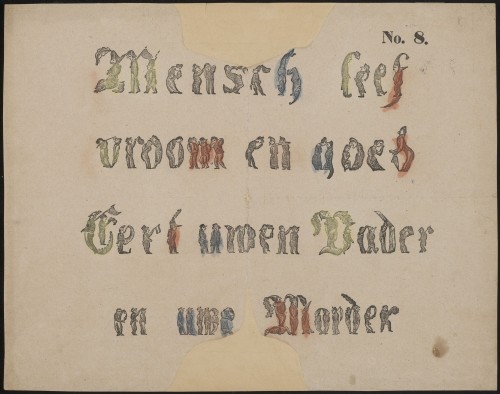 No. 8.
Mensch leef
vroom en goed
Eert uwen Vader
en uwe Moeder